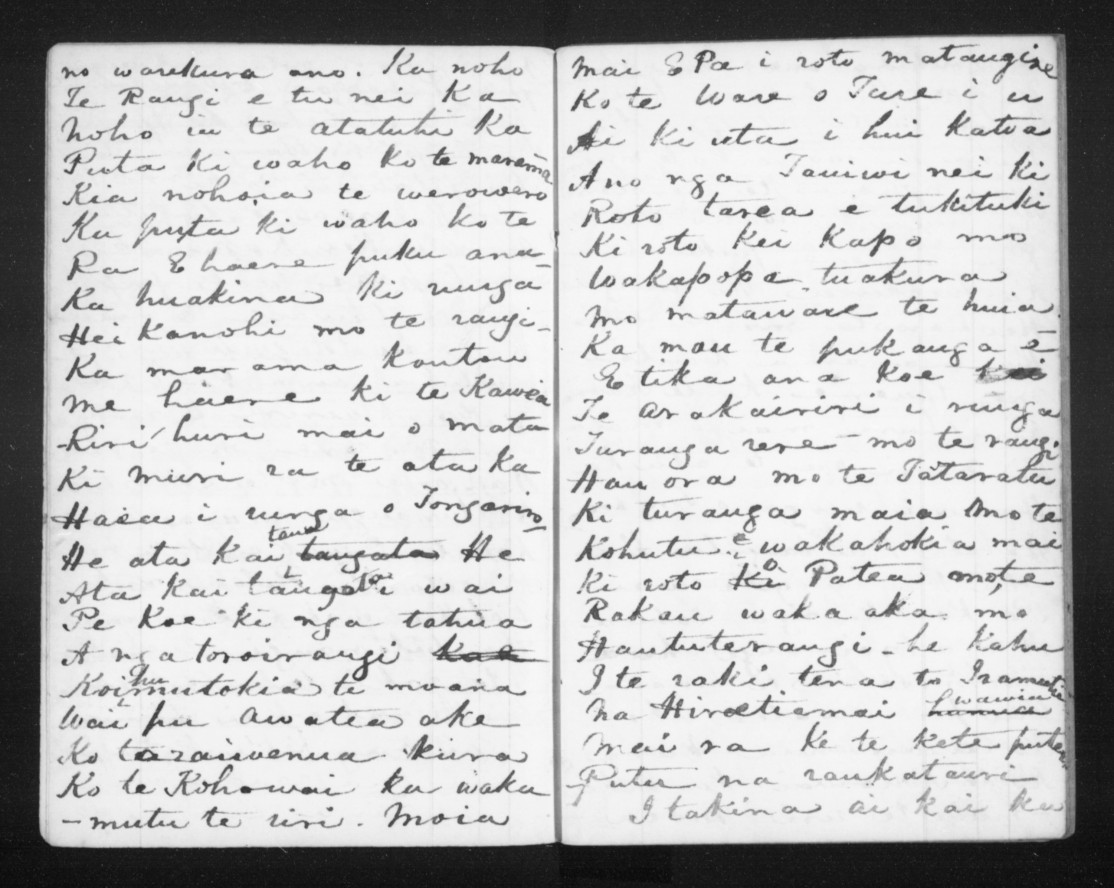 no warekura ano. Ka noho
Te Rangi e tu nei Ka
Noho iu te atatuhi Ka
Puta ki waho ko te marama
Kia nohoia te werowero
Ka puta ki waho ko te
Ra E haere puku ana-
Ka huakina ki runga
Hei Kanohi mo te rangi-
Ka marama koutou
me haere ki te Kawea
Riri huri mai o mata
Ki muri ra te ata ka
Haea i runga o Tongariro
He ata kai tang tangata He
Ata kai tangata i wai
Pe Koe ki nga tahua
A nga toroirangi koe
Koihumutokia te moana
Wai pu Awatea ake
Ko taraiwenua kura
Ko te Kohowai ka waka
-mutu te riri. Moia
mai E Pa i roto matangirei
Ko te Ware o Ture i u
Ai ki uta i hui katoa
Ano nga Tauiwi nei ki
Roto tarea e tukituki
Ki roto kei Kapo mo
Wakapopo tuakura
mo mataware te huia
Ka mau te pukanga e-
E tika ana koe
Te Arakairiri i runga
Turanga rere mo te rangi
Hauora mo te Tataratu
Ki turanga maia Mo te
Kohutu e wakahokia mai
ki roto Ki o Patea mo, te
Rakau waka aka mo
Haututerangi - he kahu
I te raki tena to
Na Hiroetiamai
Mai ra ke te kete
Putu na raukatauri
I takina ai kai ka